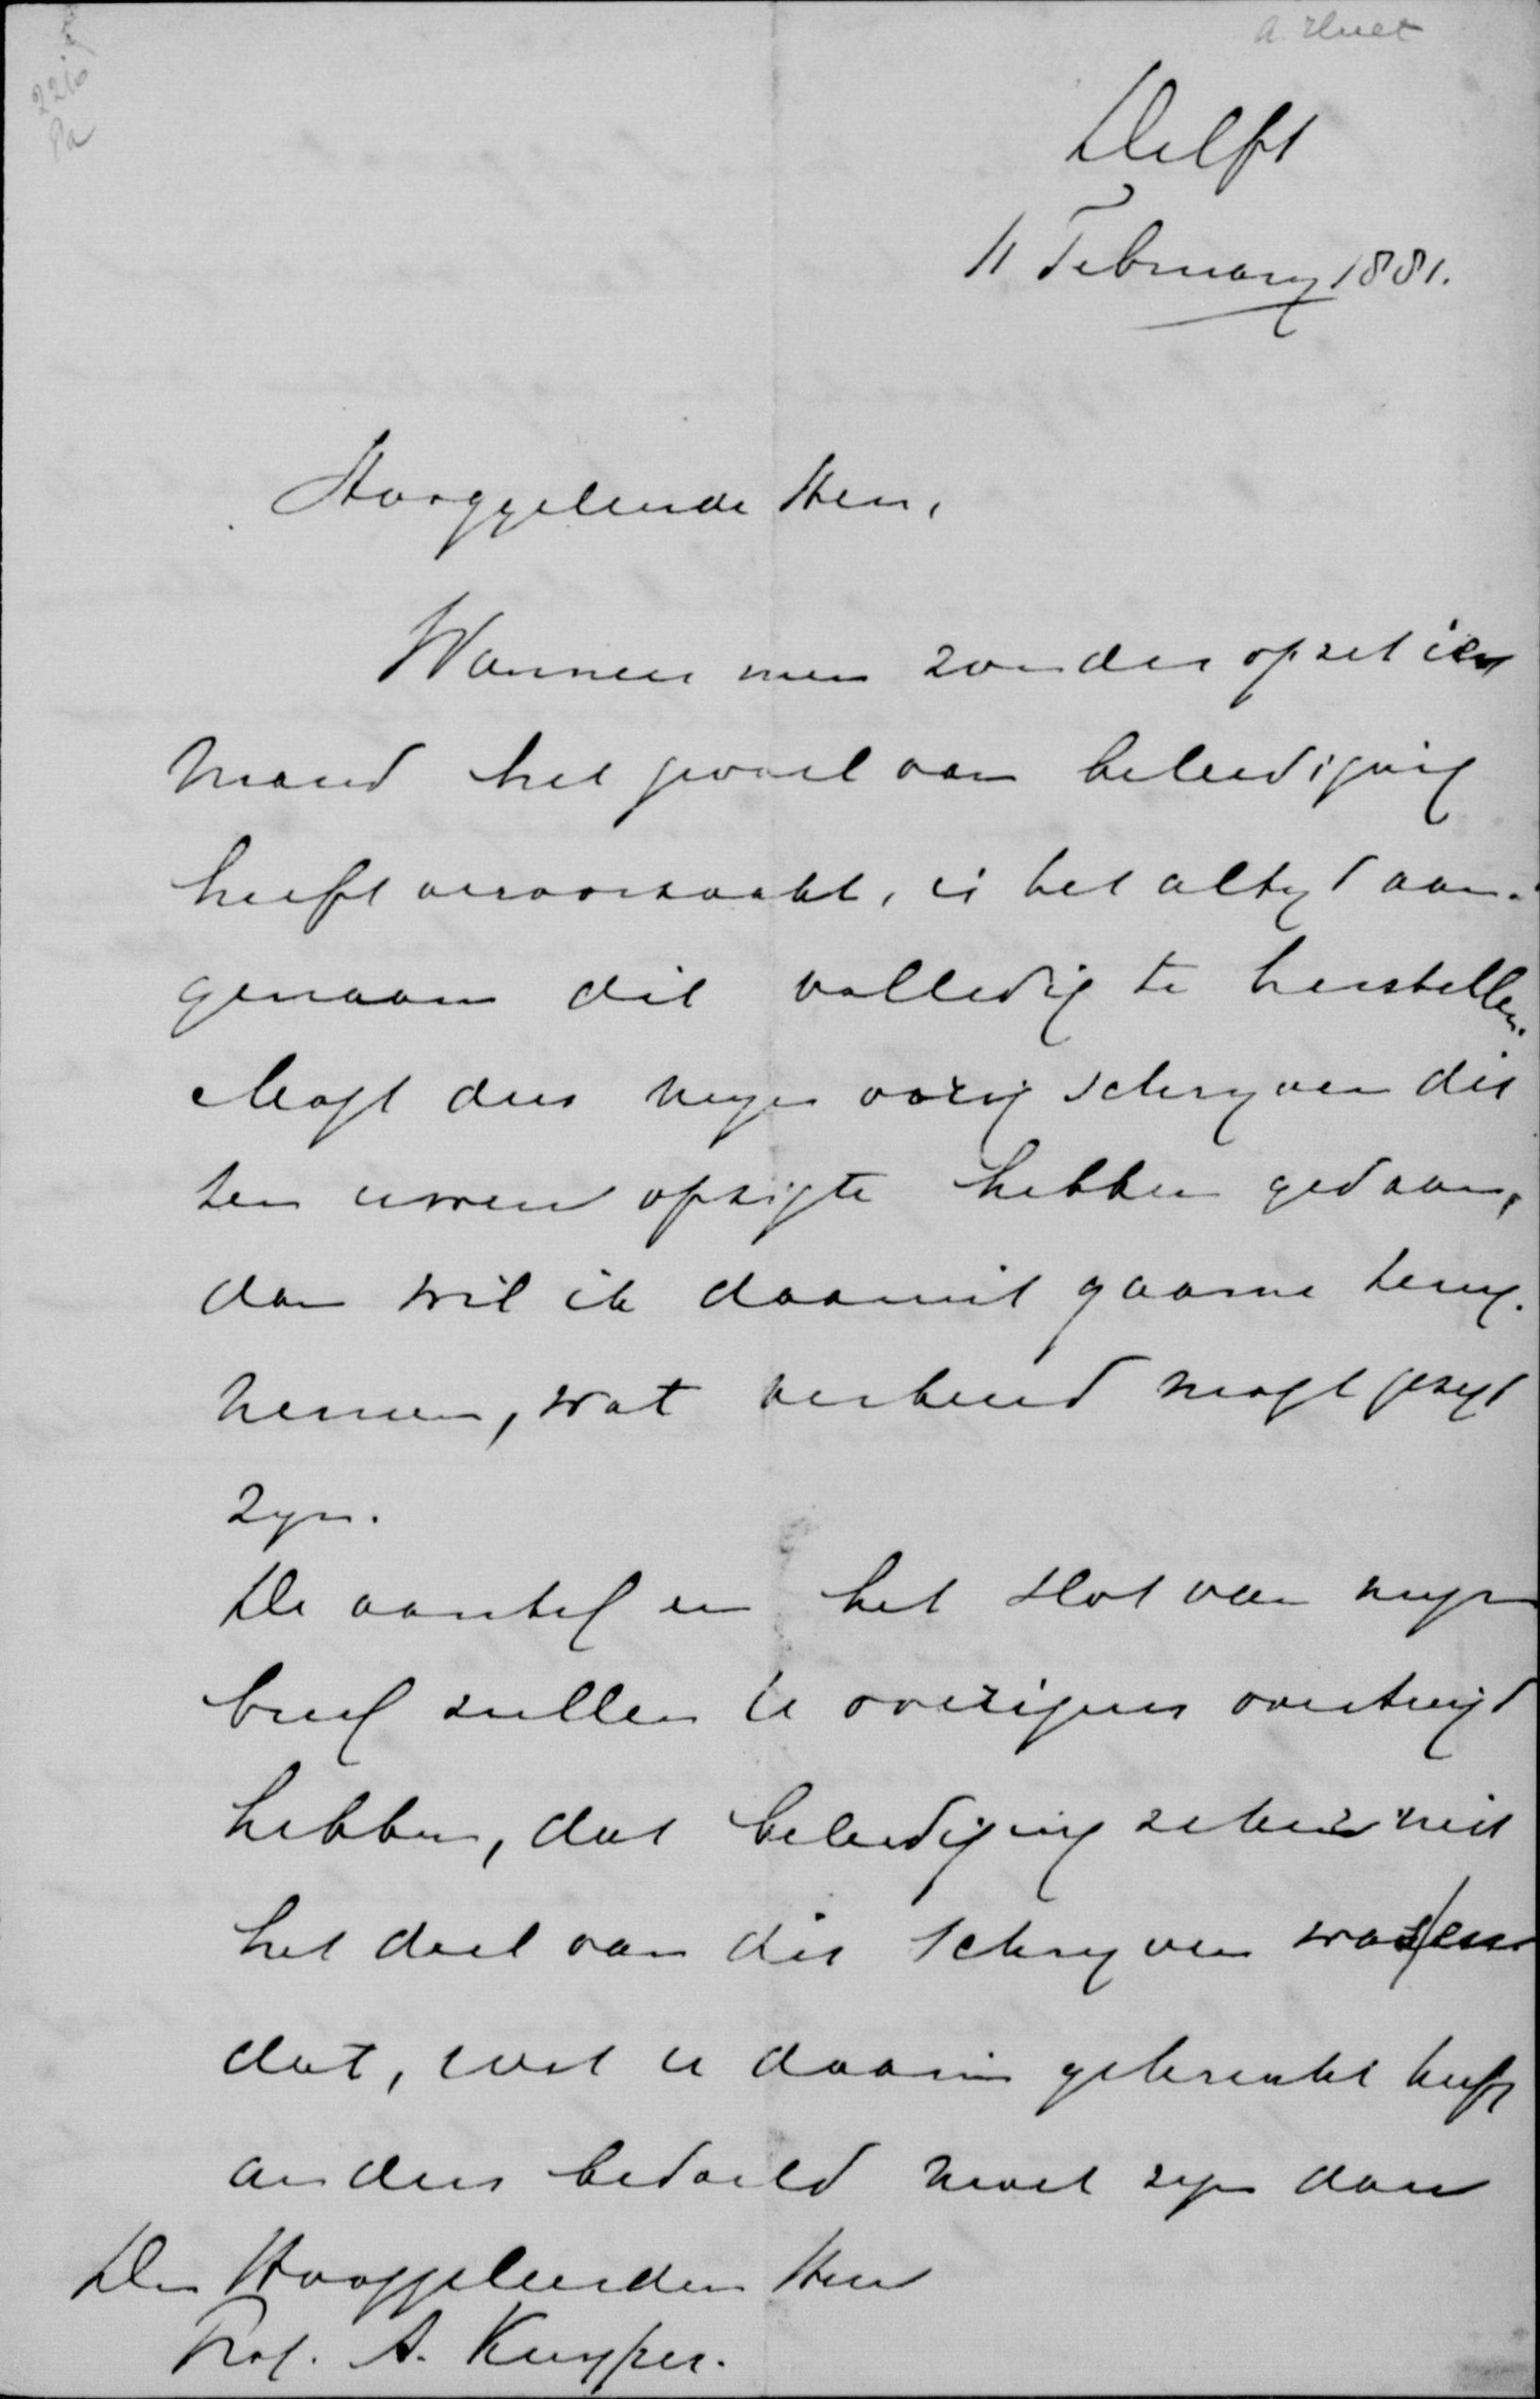 A. Huet
2216
Pa
Delft
11 February 1881.
Hooggeleerde Heer,
Wanneer men zonder opzet ie-
mand het gevoel van beleediging
heeft veroorzaakt, is het altyd aan-
genaam dit volledig te herstellen.
Mogt dus myn vorig schryven dit
ten uwen opzigte hebben gedaan,
dan wil ik daaruit gaarne terug-
nemen, wat verkeerd mogt gezegd
zyn.
De aanhef en het slot van myn
brief zullen U overigens overtuigd
hebben, dat beleediging zeker niet
het doel van dit schryven was, en
dat, wat U daarin gekrenkt heeft
anders bedoeld moet zyn dan
Den Hooggeleerden Heer
Prof. A. Kuyper.